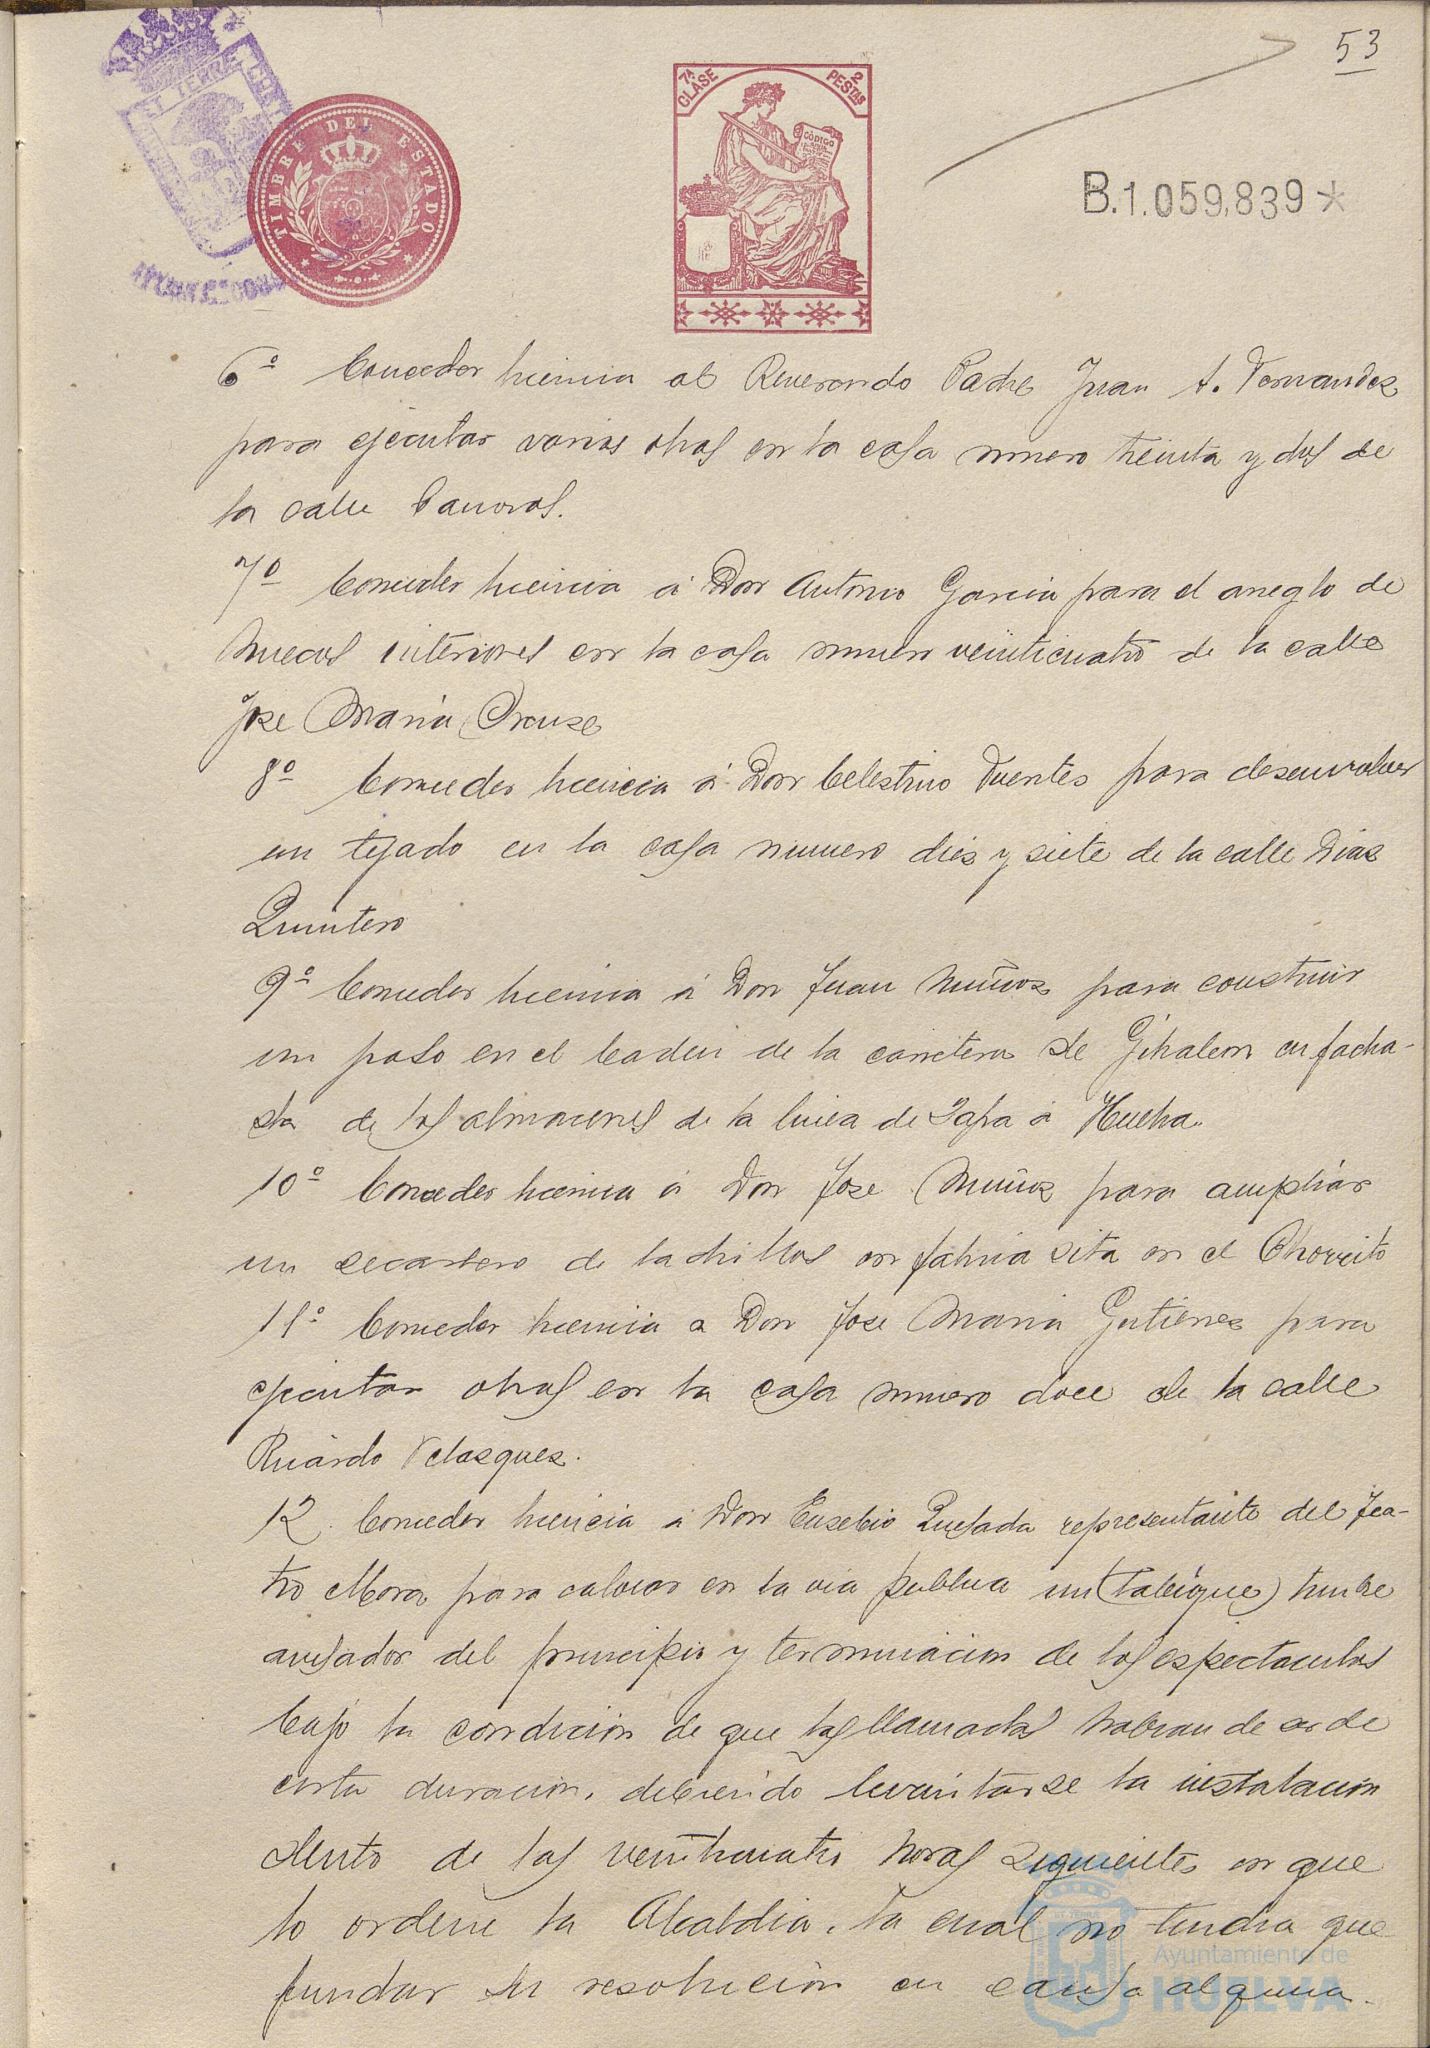 53
7ª CLASE
2 PESTAS
CÓDIGO
TIMBRE DEL ESTADO
B.1.059,839*
6º Conceder licencia al Reverendo Padre Juan A. Fernandez
para ejecutar varias obras en la casa numero treinta y dos de
la calle Canovas.
7º Conceder licencia á Don Antonio Garcia para el arreglo de
huecos interiores en la casa numero veinticuatro de la calle
Jose Maria Orense
8º Conceder licencia á Don Celestino Fuentes para desenvolver
un tejado en la casa numero diez y siete de la calle Diaz
Quintero
9º Conceder licencia á Don Juan Muñoz para construir
un paso en el badén de la carretera de Gibraleon en facha-
da de los almacenes de la linea de Zafra á Huelva.
10º Conceder licencia á Don Jose Muñoz para ampliar
un secadero de ladrillos en fabrica sita en el Chorrito
11º Conceder licencia a Don Jose Maria Gutierrez para
ejecutar obras en la casa numero doce de la calle
Ricardo Velazquez.
12. Conceder licencia á Don Eusebio Quesada representante del Tea-
tro Mora para colocar en la via publica un (tabique) timbre
avisador del principio y terminacion de los espectaculos
bajo la condicion de que las llamadas habran de ser de
corta duracion, debiendo levantarse la instalacion
dentro de las veinticuatro horas siguientes en que
lo ordene la Alcaldia, la cual no tendra que
fundar su resolucion en causa alguna.
Ayuntamiento de
HUELVA